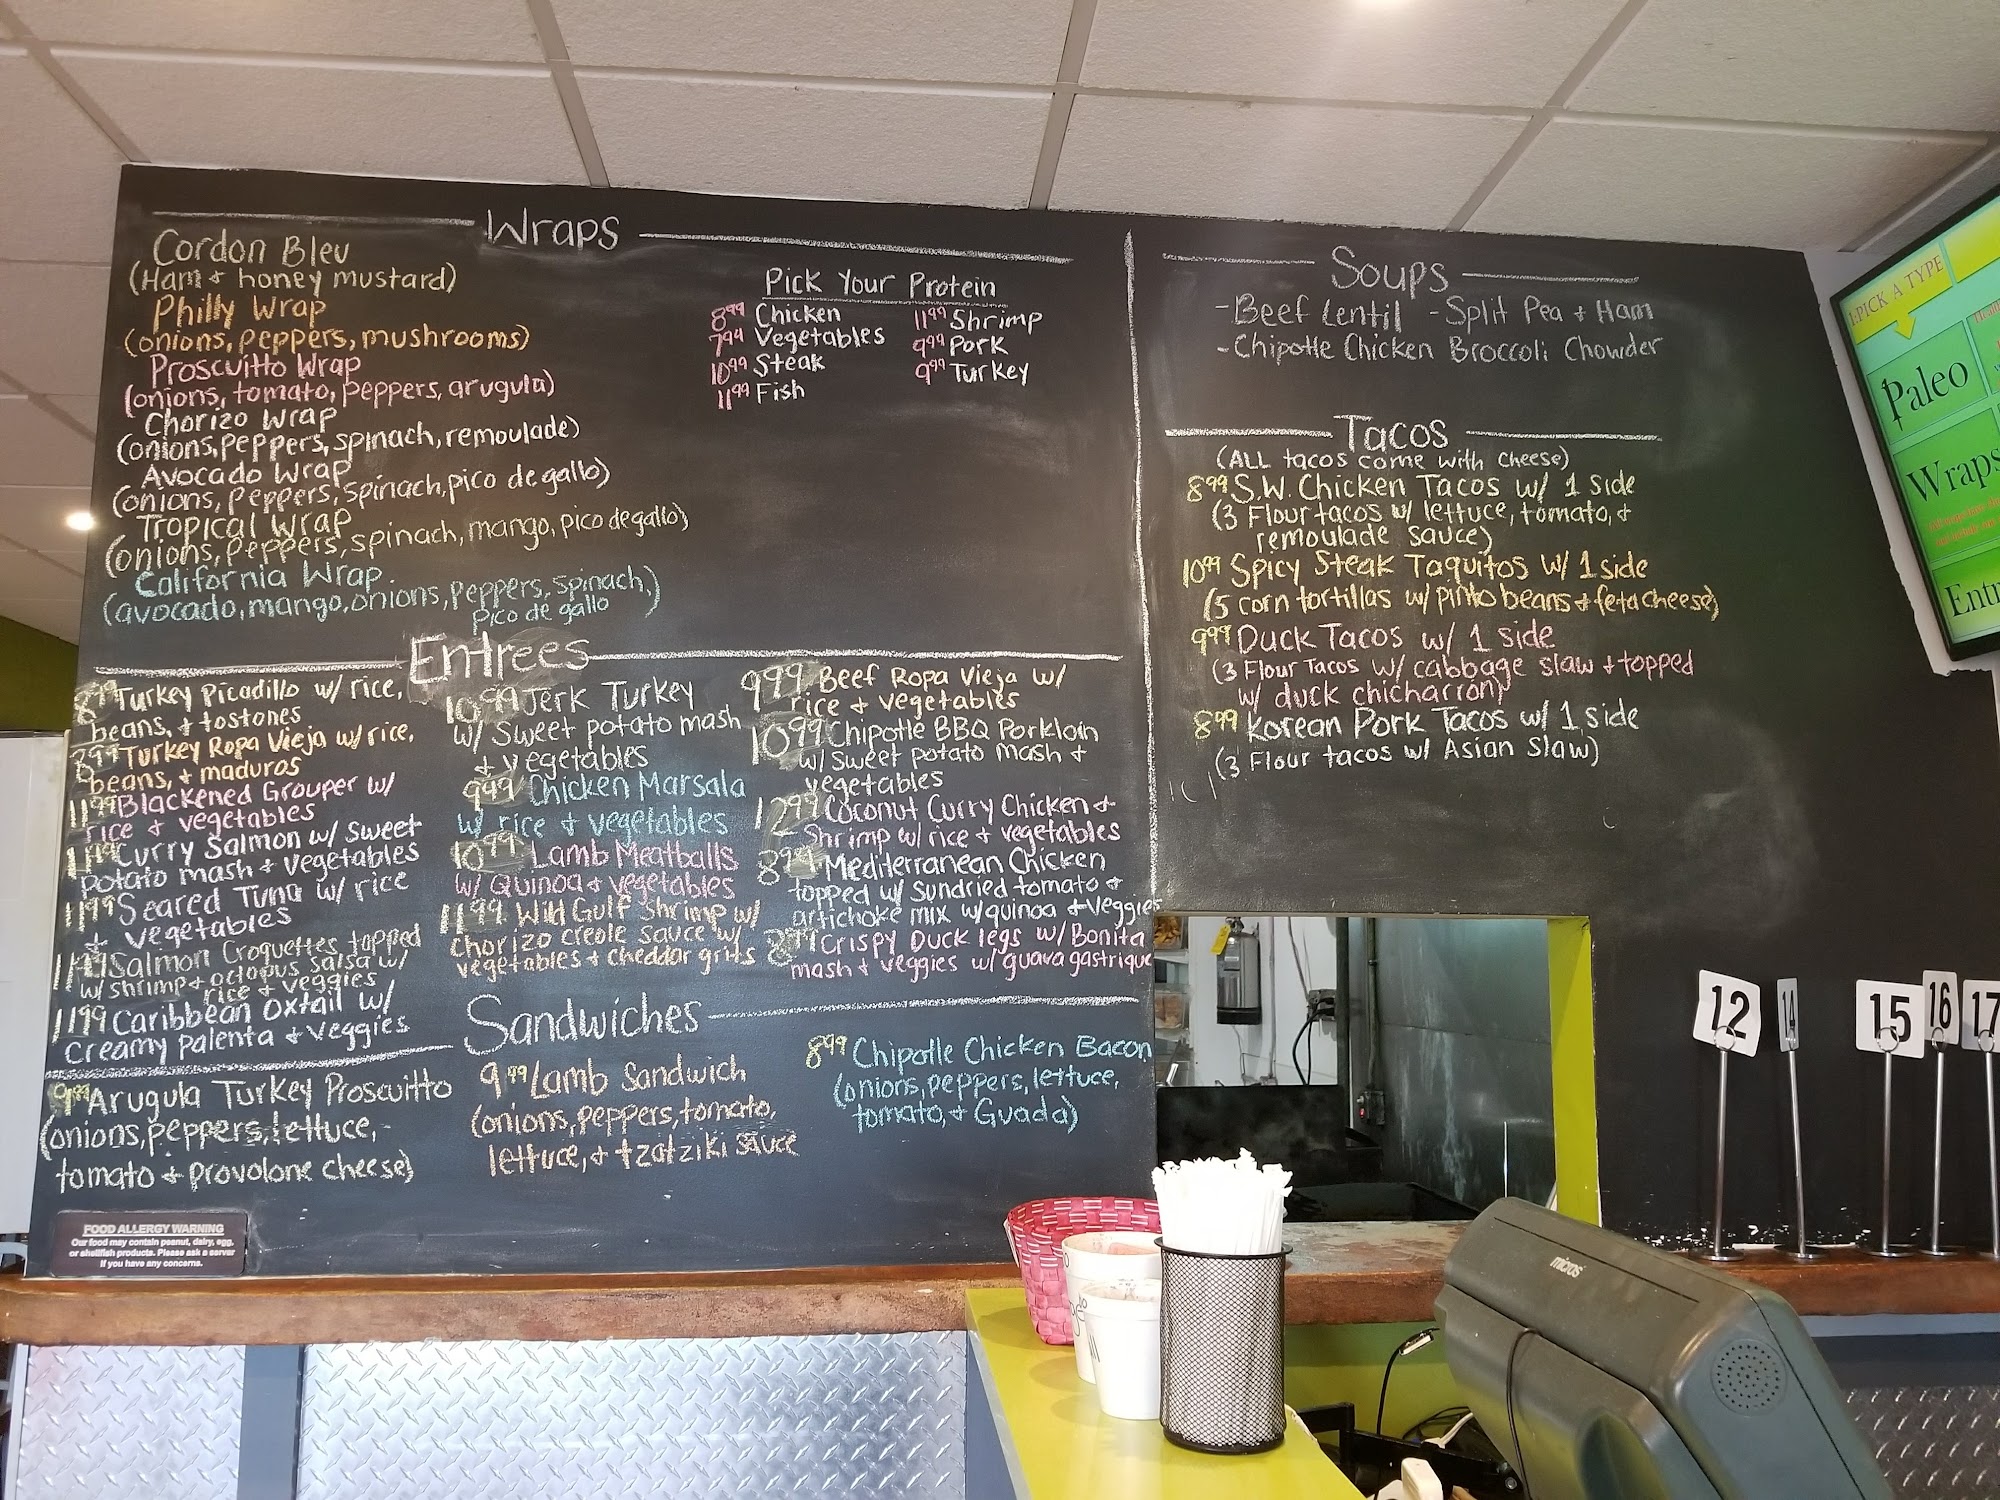 Wraps
Cordon Bleu
(Ham + honey mustard)
Philly Wrap
(onions, peppers, mushrooms)
Proscuitto Wrap
(onions, tomato, peppers, arugula)
Chorizo Wrap
(onions, peppers, spinach, remoulade)
Avocado Wrap
(onions, peppers, spinach, pico de gallo)
Tropical Wrap
(onions, peppers, spinach, mango, pico de gallo)
California Wrap
(avocado, mango, onions, peppers, spinach,
pico de gallo
Pick Your Protein
8.99 Chicken
7.99 Vegetables
10.99 Steak
11.99 Fish
11.99 Shrimp
9.99 Pork
9.99 Turkey
Entrees
8.99 Turkey Picadillo w/ rice,
beans, + tostones
8.99 Turkey Ropa Vieja w/ rice,
beans, + maduros
11.99 Blackened Grouper w/
rice + vegetables
11.99 Curry Salmon w/ sweet
potato mash + vegetables
11.99 Seared Tuna w/ rice
+ vegetables
Salmon Croquettes topped
w/ shrimp + octopus salsa w/
rice + veggies
11.99 Caribbean Oxtail w/
creamy palenta + veggies
10.99 Jerk Turkey
w/ Sweet potato mash
+ vegetables
9.99 Chicken Marsala
w/ rice + vegetables
10.99 Lamb Meatballs
w/ Quinoa + vegetables
11.99 Wild Gulf Shrimp w/
chorizo creole sauce w/
vegetables + cheddar grits
9.99 Beef Ropa Vieja w/
rice + vegetables
10.99 Chipotle BBQ Porkloin
w/ sweet potato mash +
vegetables
12.99 Coconut Curry Chicken +
Shrimp w/ rice + vegetables
8.99 Mediterranean Chicken
topped w/ sundried tomato +
artichoke mix w/ quinoa + veggies
8.99 Crispy Duck legs w/ Bonita
mash + veggies w/ guava gastrique
Sandwiches
9.99 Arugula Turkey Proscuitto
(onions, peppers, lettuce,
tomato + provolone cheese)
9.99 Lamb Sandwich
(onions, peppers, tomato,
lettuce, + tzatziki sauce
8.99 Chipotle Chicken Bacon
(onions, peppers, lettuce,
tomato, + Guada)
Soups
- Beef Lentil - Split Pea + Ham
- Chipotle Chicken Broccoli Chowder
Tacos
(ALL tacos come with cheese)
8.99 S.W. Chicken Tacos w/ 1 side
(3 Flour tacos w/ lettuce, tomato, +
remoulade sauce)
10.99 Spicy Steak Taquitos w/ 1 side
(5 corn tortillas w/ pinto beans + feta cheese)
9.99 Duck Tacos w/ 1 side
(3 Flour Tacos w/ cabbage slaw + topped
w/ duck chicharron)
8.99 Korean Pork Tacos w/ 1 side
(3 Flour tacos w/ Asian slaw)
FOOD ALLERGY WARNING
Our food may contain peanut, dairy, egg,
or shellfish products. Please ask a server
if you have any concerns.
1:PICK A TYPE
Paleo
Wraps
Entr
12
14
15
16
17
micros